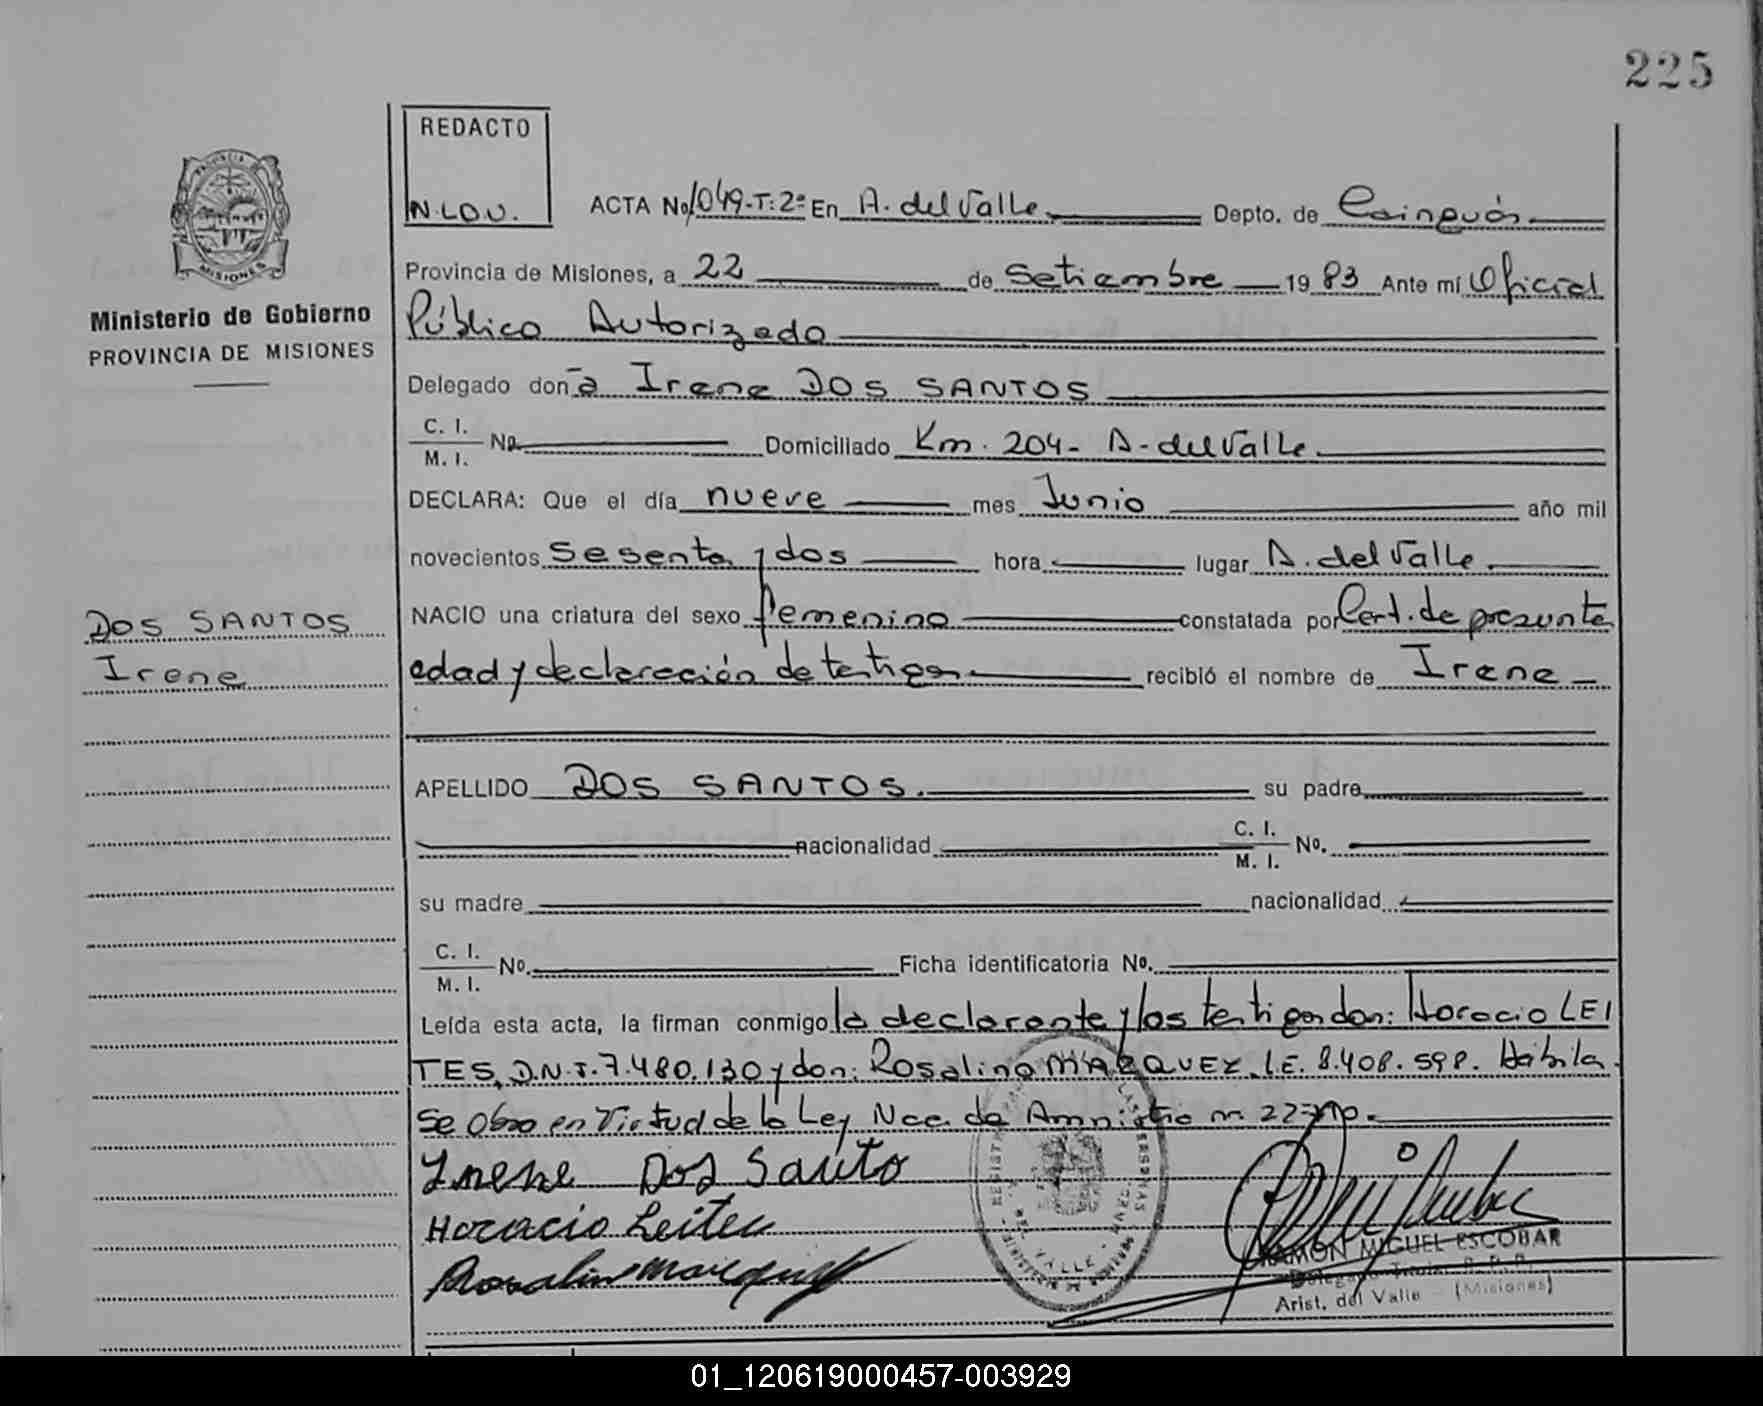 225
REDACTO
N.LOU.
ACTA No 1049-T:2º En A. del Valle Depto. de Cainguás
Provincia de Misiones, a 22 de Setiembre 1983 Ante mí Oficial
Público Autorizado
Ministerio de Gobierno
PROVINCIA DE MISIONES
Delegado don a Irene DOS SANTOS
C. I.
M. I. No Domiciliado Km. 204- A. del Valle
DECLARA: Que el día nueve mes Junio año mil
novecientos sesenta y dos hora lugar A. del Valle
NACIO una criatura del sexo femenino constatada por Cert. de presunta
edad y declaración de testigos. recibió el nombre de Irene
DOS SANTOS
Irene
APELLIDO DOS SANTOS. su padre
nacionalidad C. I.
M. I. No.
su madre nacionalidad
C. I.
M. I. No. Ficha identificatoria No.
Leída esta acta, la firman conmigo la declarante y los testigos don: Horacio LEI
TES, D.N.I. 7.480.130 y don: Rosalino MARQUEZ, L.E. 8.408.598. Hábiles.
Se obró en Virtud de la Ley Nac. de Amnistia
Irene Dos Santo
Horacio Leites
Rosalino Marquez
RAMON MIGUEL ESCOBAR
Delegado Titular R. P. P.
Arist. del Valle - (Misiones)
01_120619000457-003929